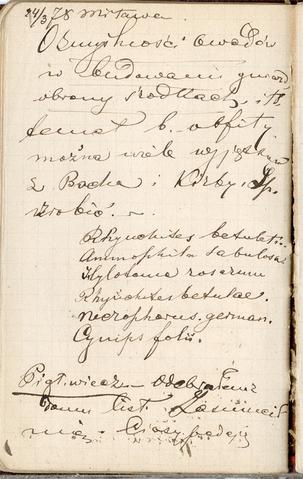 24/3 78 Mitawa.
Ozmyślność owadów
w budowaniu gniazd
obrony środkach, itp.
temat b. obfity,
można wiele wyjątków
z Bacha i Kirby, Sp.
zrobić. ~
Rhynchites betuleti.
Ammophila sabulosa
Hylotoma rosarum
Rhynchites betulae.
Necrophorus german.
Cynips folii.
Piąt. wieczór odebrałem
list